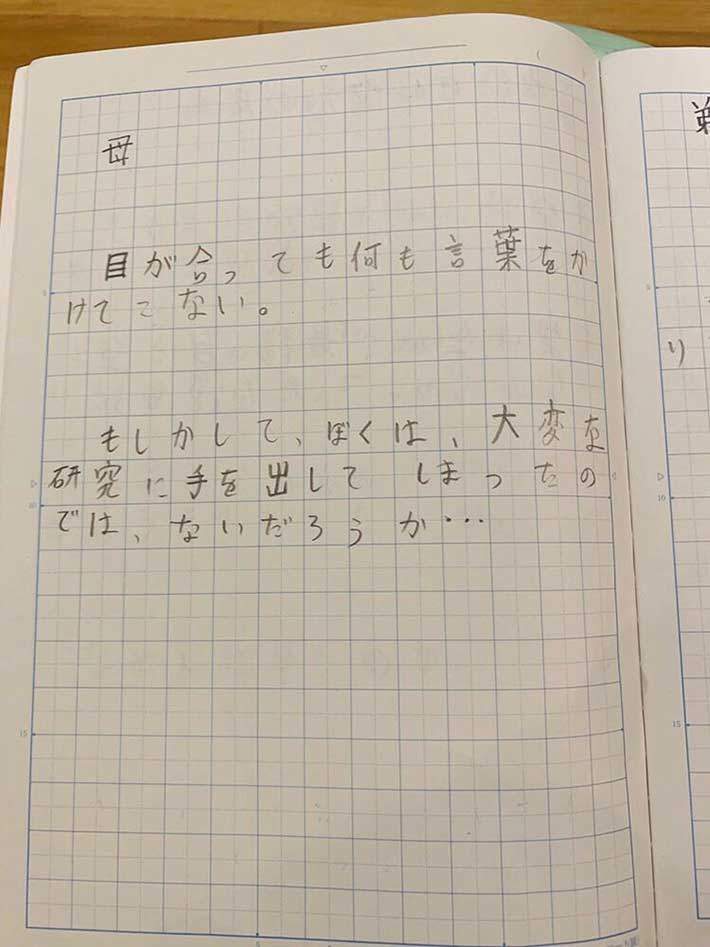 母
目が合っても何も言葉をか
けてこない。
もしかして、ぼくは、大変な
研究に手を出してしまったの
では、ないだろうか…
り
15
10
15